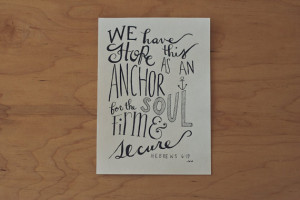 WE have
Hope this
AS AN
ANCHOR
for the SOUL
firm &
secure
HEBREWS 6:19